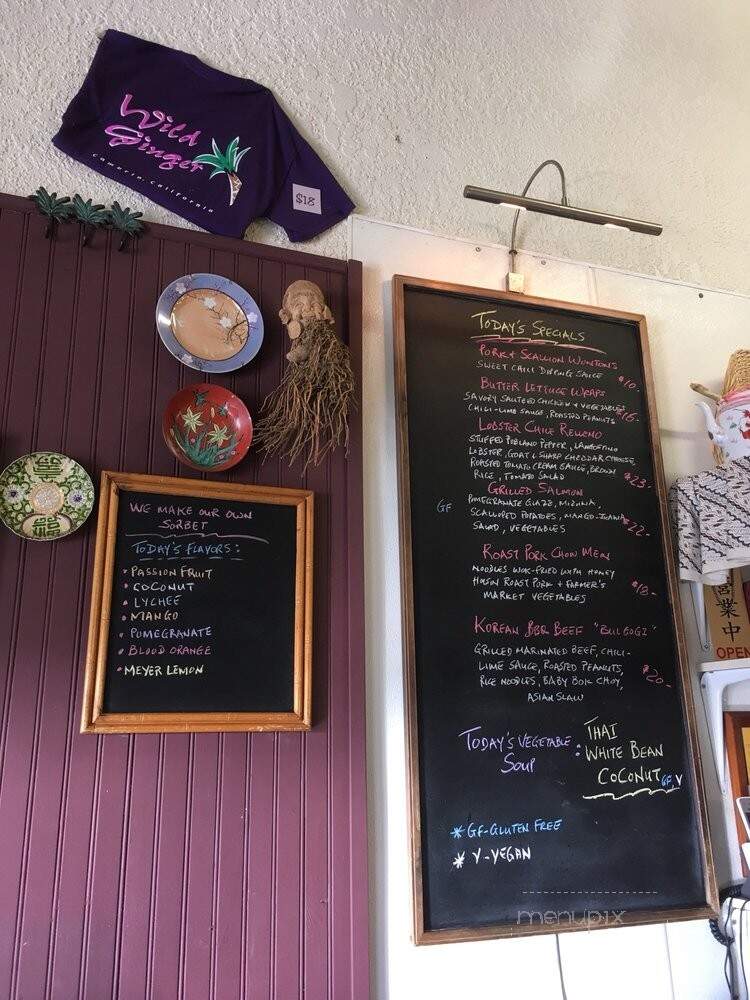 Wild
Ginger
cambria, california
$18
WE MAKE OUR OWN
SORBET
TODAY'S FLAVORS:
• PASSION FRUIT
• COCONUT
• LYCHEE
• MANGO
• POMEGRANATE
• BLOOD ORANGE
• MEYER LEMON
TODAY'S SPECIALS
PORK & SCALLION WONTONS
SWEET CHILI DIPPING SAUCE $10-
BUTTER LETTUCE WRAPS
SAVORY SAUTEED CHICKEN & VEGETABLES,
CHILI-LIME SAUCE, ROASTED PEANUTS $16-
LOBSTER CHILE RELLENO
STUFFED POBLANO PEPPER, LANGOSTINO
LOBSTER, GOAT & SHARP CHEDDAR CHEESE,
ROASTED TOMATO CREAM SAUCE, BROWN
RICE, TOMATO SALAD $23-
GRILLED SALMON
GF POMEGRANATE GLAZE, MIZUNA,
SCALLOPED POTATOES, MANGO-JICAMA
SALAD, VEGETABLES $22-
ROAST PORK CHOW MEIN
NOODLES WOK-FRIED WITH HONEY
HOISIN ROAST PORK & FARMER'S
MARKET VEGETABLES $18-
KOREAN BBQ BEEF "BULGOGI"
GRILLED MARINATED BEEF, CHILI-
LIME SAUCE, ROASTED PEANUTS,
RICE NOODLES, BABY BOK CHOY,
ASIAN SLAW $20-
TODAY'S VEGETABLE SOUP : THAI
WHITE BEAN
COCONUT GF, V
* GF-GLUTEN FREE
* V-VEGAN
営業中
OPEN
menupix